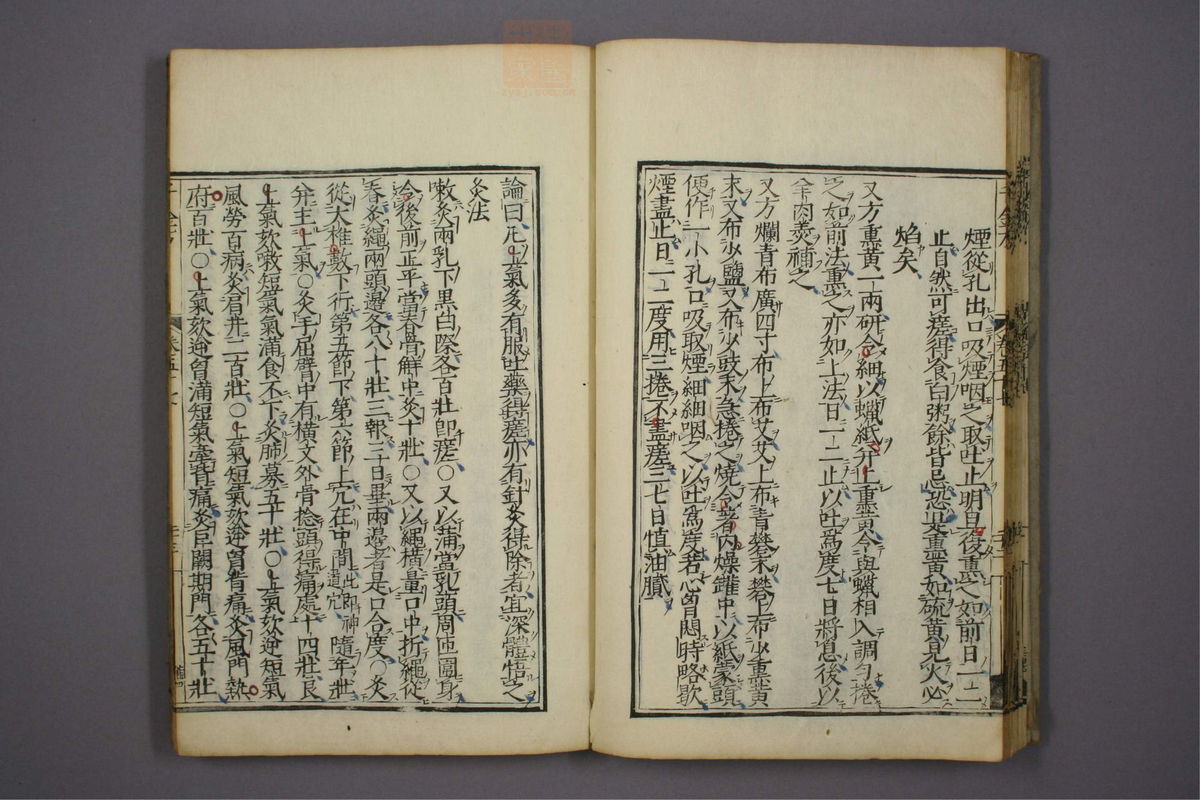 煙從孔出口吸煙咽之取吐止明旦後熏之如前日一二
止自然可瘥得食白粥餘皆忌恐是熏黃如硫黃見火必
焰矣
又方熏黃一兩研令細以蠟紙并上熏黃令與蠟相入調勻捲
之如前法熏之亦如上法日一二止以吐爲度七日將息後以
羊肉羹補之
又方爛青布廣四寸布上布艾艾上布青礬末礬上布少熏黃
末又布少鹽又布少豉末急捲之燒令著內燥罐中以紙蒙頭
便作一小孔口吸取煙細細咽之以吐爲度若心胷悶時略歇
煙盡止日一二度用三捲不盡瘥三七日慎油膩
論曰凡上氣多有服吐藥得瘥亦有針灸得除者宜深體悟之
灸法
嗽灸兩乳下黑白際各百壯即瘥〇又以蒲當乳頭周匝圍身
令後前正平當脊骨解中灸十壯〇又以繩橫量口中折繩從
脊灸繩兩頭邊各八十壯三報三日畢兩邊者是口合度〇灸
從大椎數下行第五節下第六節上穴在中間此即神道穴隨年壯
并主上氣〇灸手屈臂中有橫文外骨捻頭得痛處十四壯良
上氣欬嗽短氣氣滿食不下灸肺募五十壯〇上氣欬逆短氣
風勞百病灸肩井二百壯〇上氣短氣欬逆胷背痛灸風門熱
府百壯〇上氣欬逆胷滿短氣牽背痛灸巨闕期門各五十壯